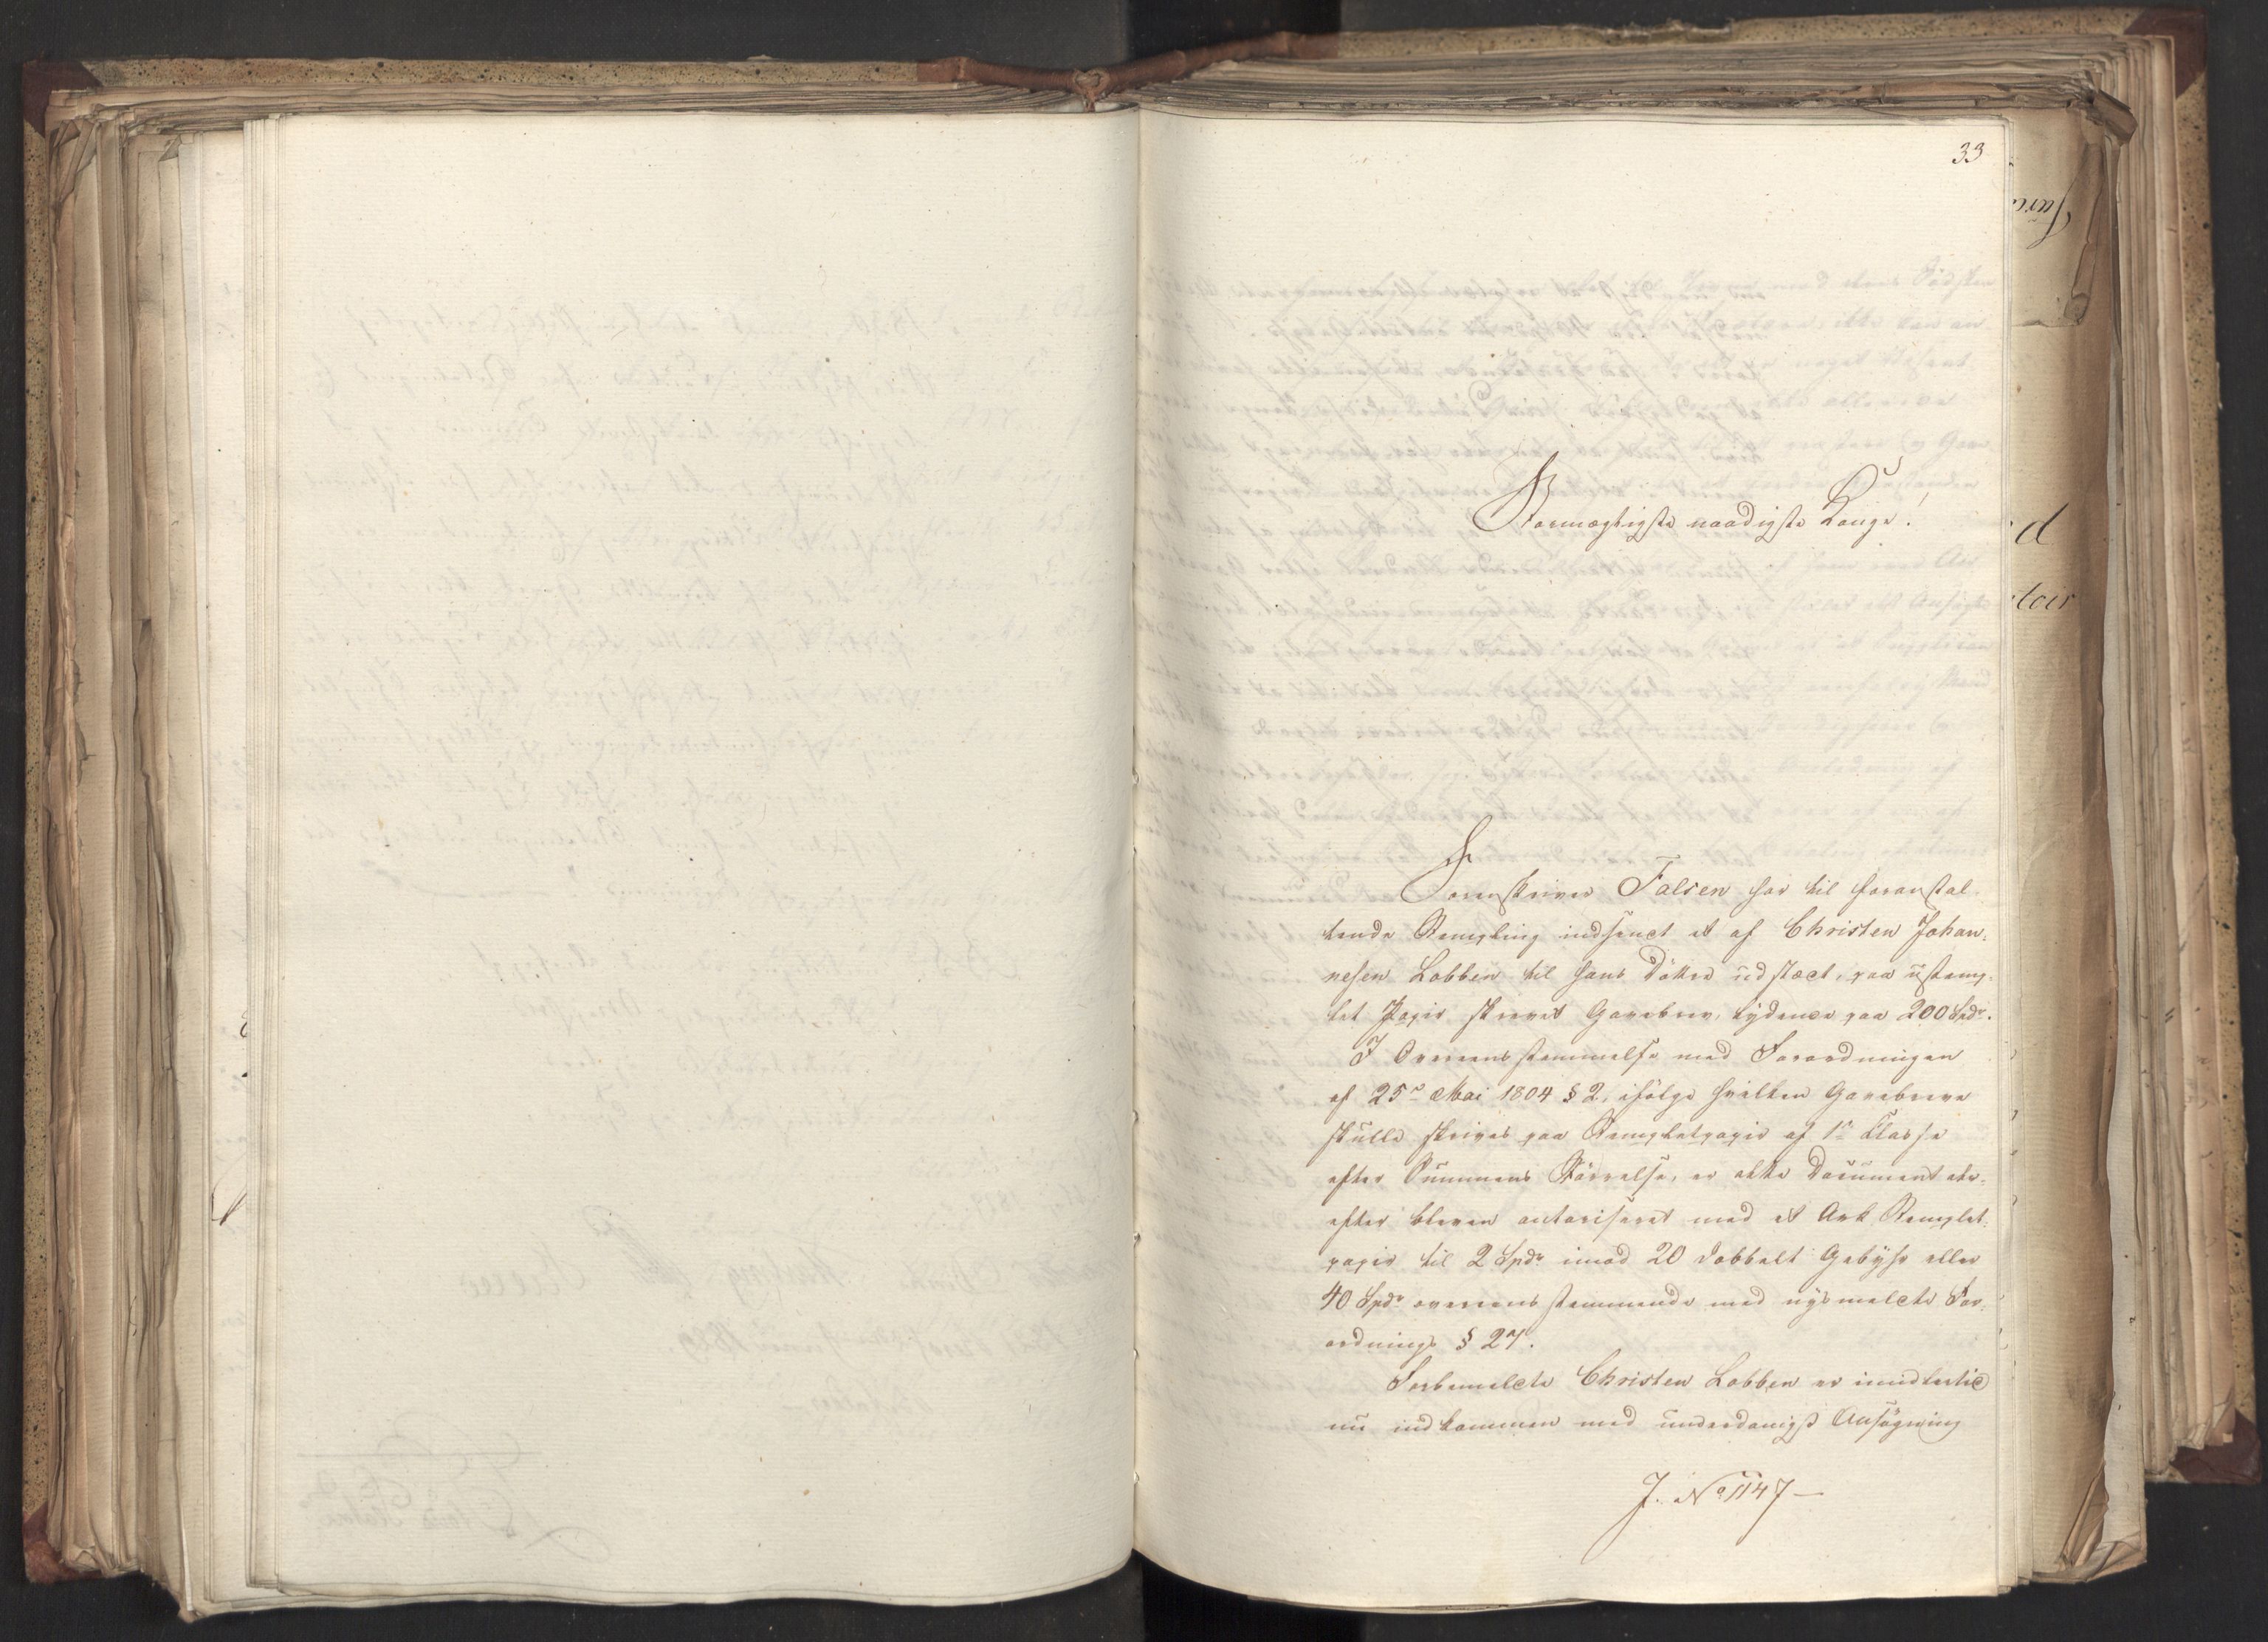 33
Stormægtigste naadigste Konge!
Sorenskriver Falsen har til foranstal-
tende Stempling indsendt et af Christen Johan-
nesen Lobben til hans Döttre udstædt, paa ustemp-
let Papir skrevet Gavebrev, lydende paa 200 Spdr.
I Overeensstemmelse med Forordningen
af 25de Mai 1804 § 2, ifölge hvilken Gavebreve
skulle skrives paa Stempletpapir af 1ste Classe
efter Summens Störrelse, er dette Document der-
efter bleven autoriseret med et Ark Stemplet-
papir til 2 Spdr imod 20 dobbelt Gebyhr eller
40 Spdr overeensstemmende med nysmeldte For-
ordnings § 27.
Forbemeldte Christen Lobben er imidlertid
nu indkommen med underdanigst Ansögning
J. No 1147 —